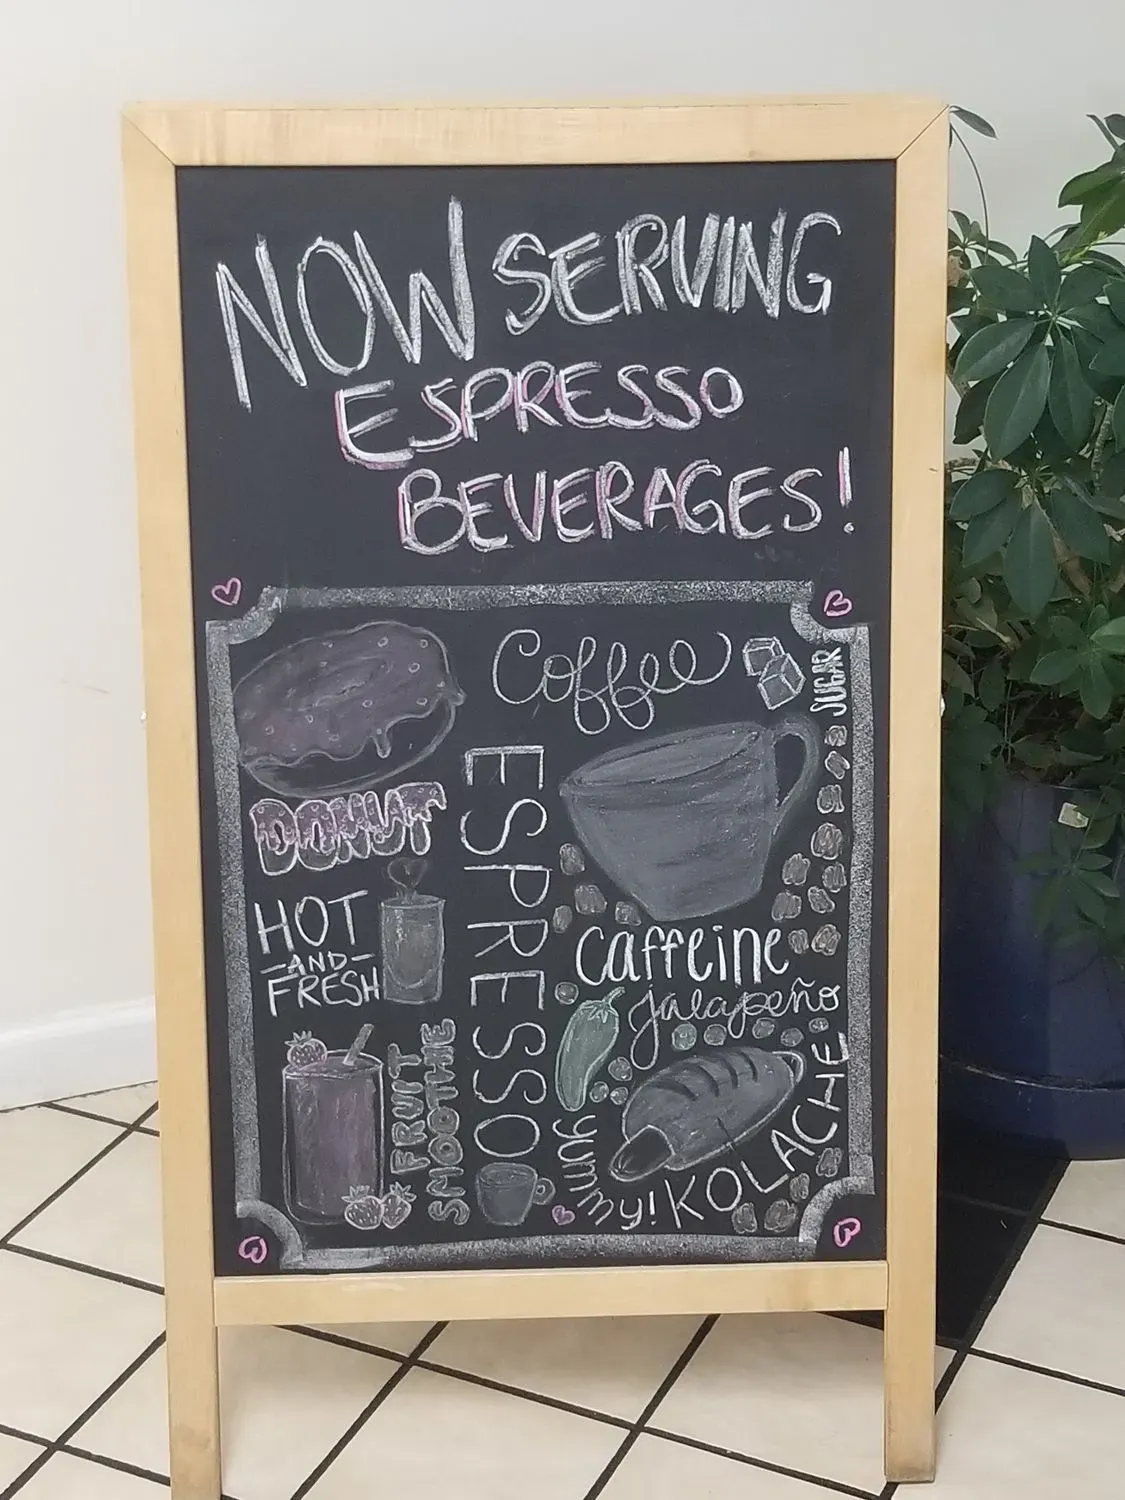 NOW SERVING
ESPRESSO
BEVERAGES!
Coffee
SUGAR
DONUT
ESPRESSO
HOT
-AND-
FRESH
caffeine
jalapeño
FRUIT
SMOOTHIE
yummy!
KOLACHE